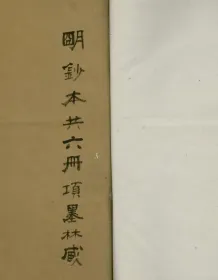 明鈔本共六冊項墨林藏